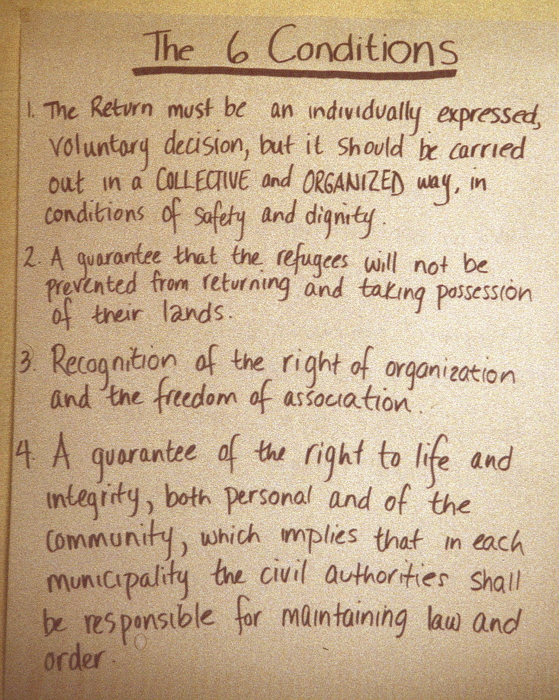 The 6 Conditions
1. The Return must be an individually expressed,
voluntary decision, but it should be carried
out in a COLLECTIVE and ORGANIZED way, in
conditions of safety and dignity.
2. A guarantee that the refugees will not be
prevented from returning and taking possession
of their lands.
3. Recognition of the right of organization
and the freedom of association.
4. A guarantee of the right to life and
integrity, both personal and of the
community, which implies that in each
municipality the civil authorities shall
be responsible for maintaining law and
order.